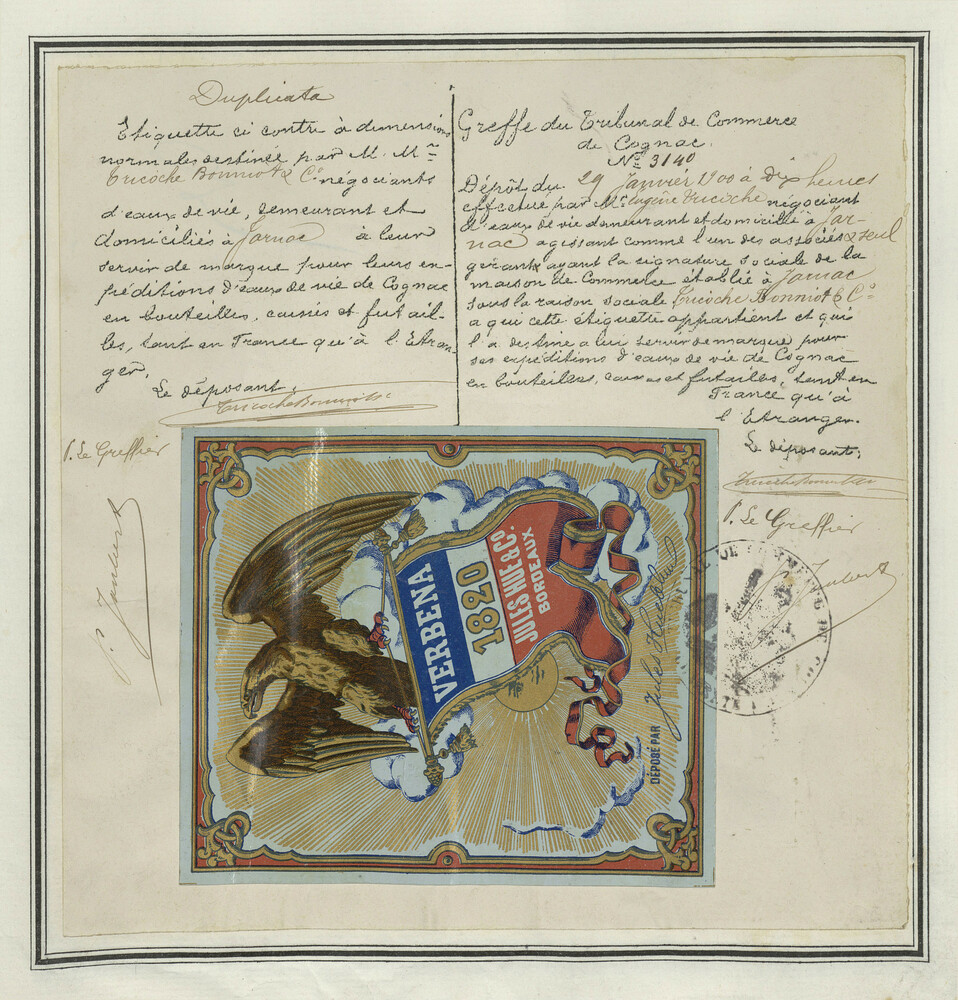 Duplicata
Etiquette ci contre à dimensions
normales destinée par M. Mrs
Tricoche Bonniot & Co négociants
d'eaux de vie, demeurant et
domiciliés à Jarnac à leur
servir de marque pour leurs ex-
péditions d'eaux de vie de Cognac
en bouteilles, caisses et futail-
les, tant en France qu'à l'Etran-
ger.
Le déposant:
Tricoche Bonniot & Co
P. Le Greffier
P. Joubert
Greffe du Tribunal de Commerce
de Cognac.
No 3140
Dépôt du 29 Janvier 1900 à dix heures
effectué par Mr Eugène Tricoche négociant
d'eaux de vie demeurant et domicilié à Jar-
nac agissant comme l'un des associés & seul
gérant ayant la signature sociale de la
maison de Commerce établie à Jarnac
sous la raison sociale Tricoche Bonniot & Co
a qui cette étiquette appartient et qui
l'a destine a lui servir de marque pour
ses expéditions d'eaux de vie de Cognac
en bouteilles, caisses et futailles, tant en
France qu'à
l'Etranger.
Le déposant:
Tricoche Bonniot & Co
P. Le Greffier
Joubert
VERBENA
1820
JULES HUE & CO.
BORDEAUX
DÉPOSÉ PAR